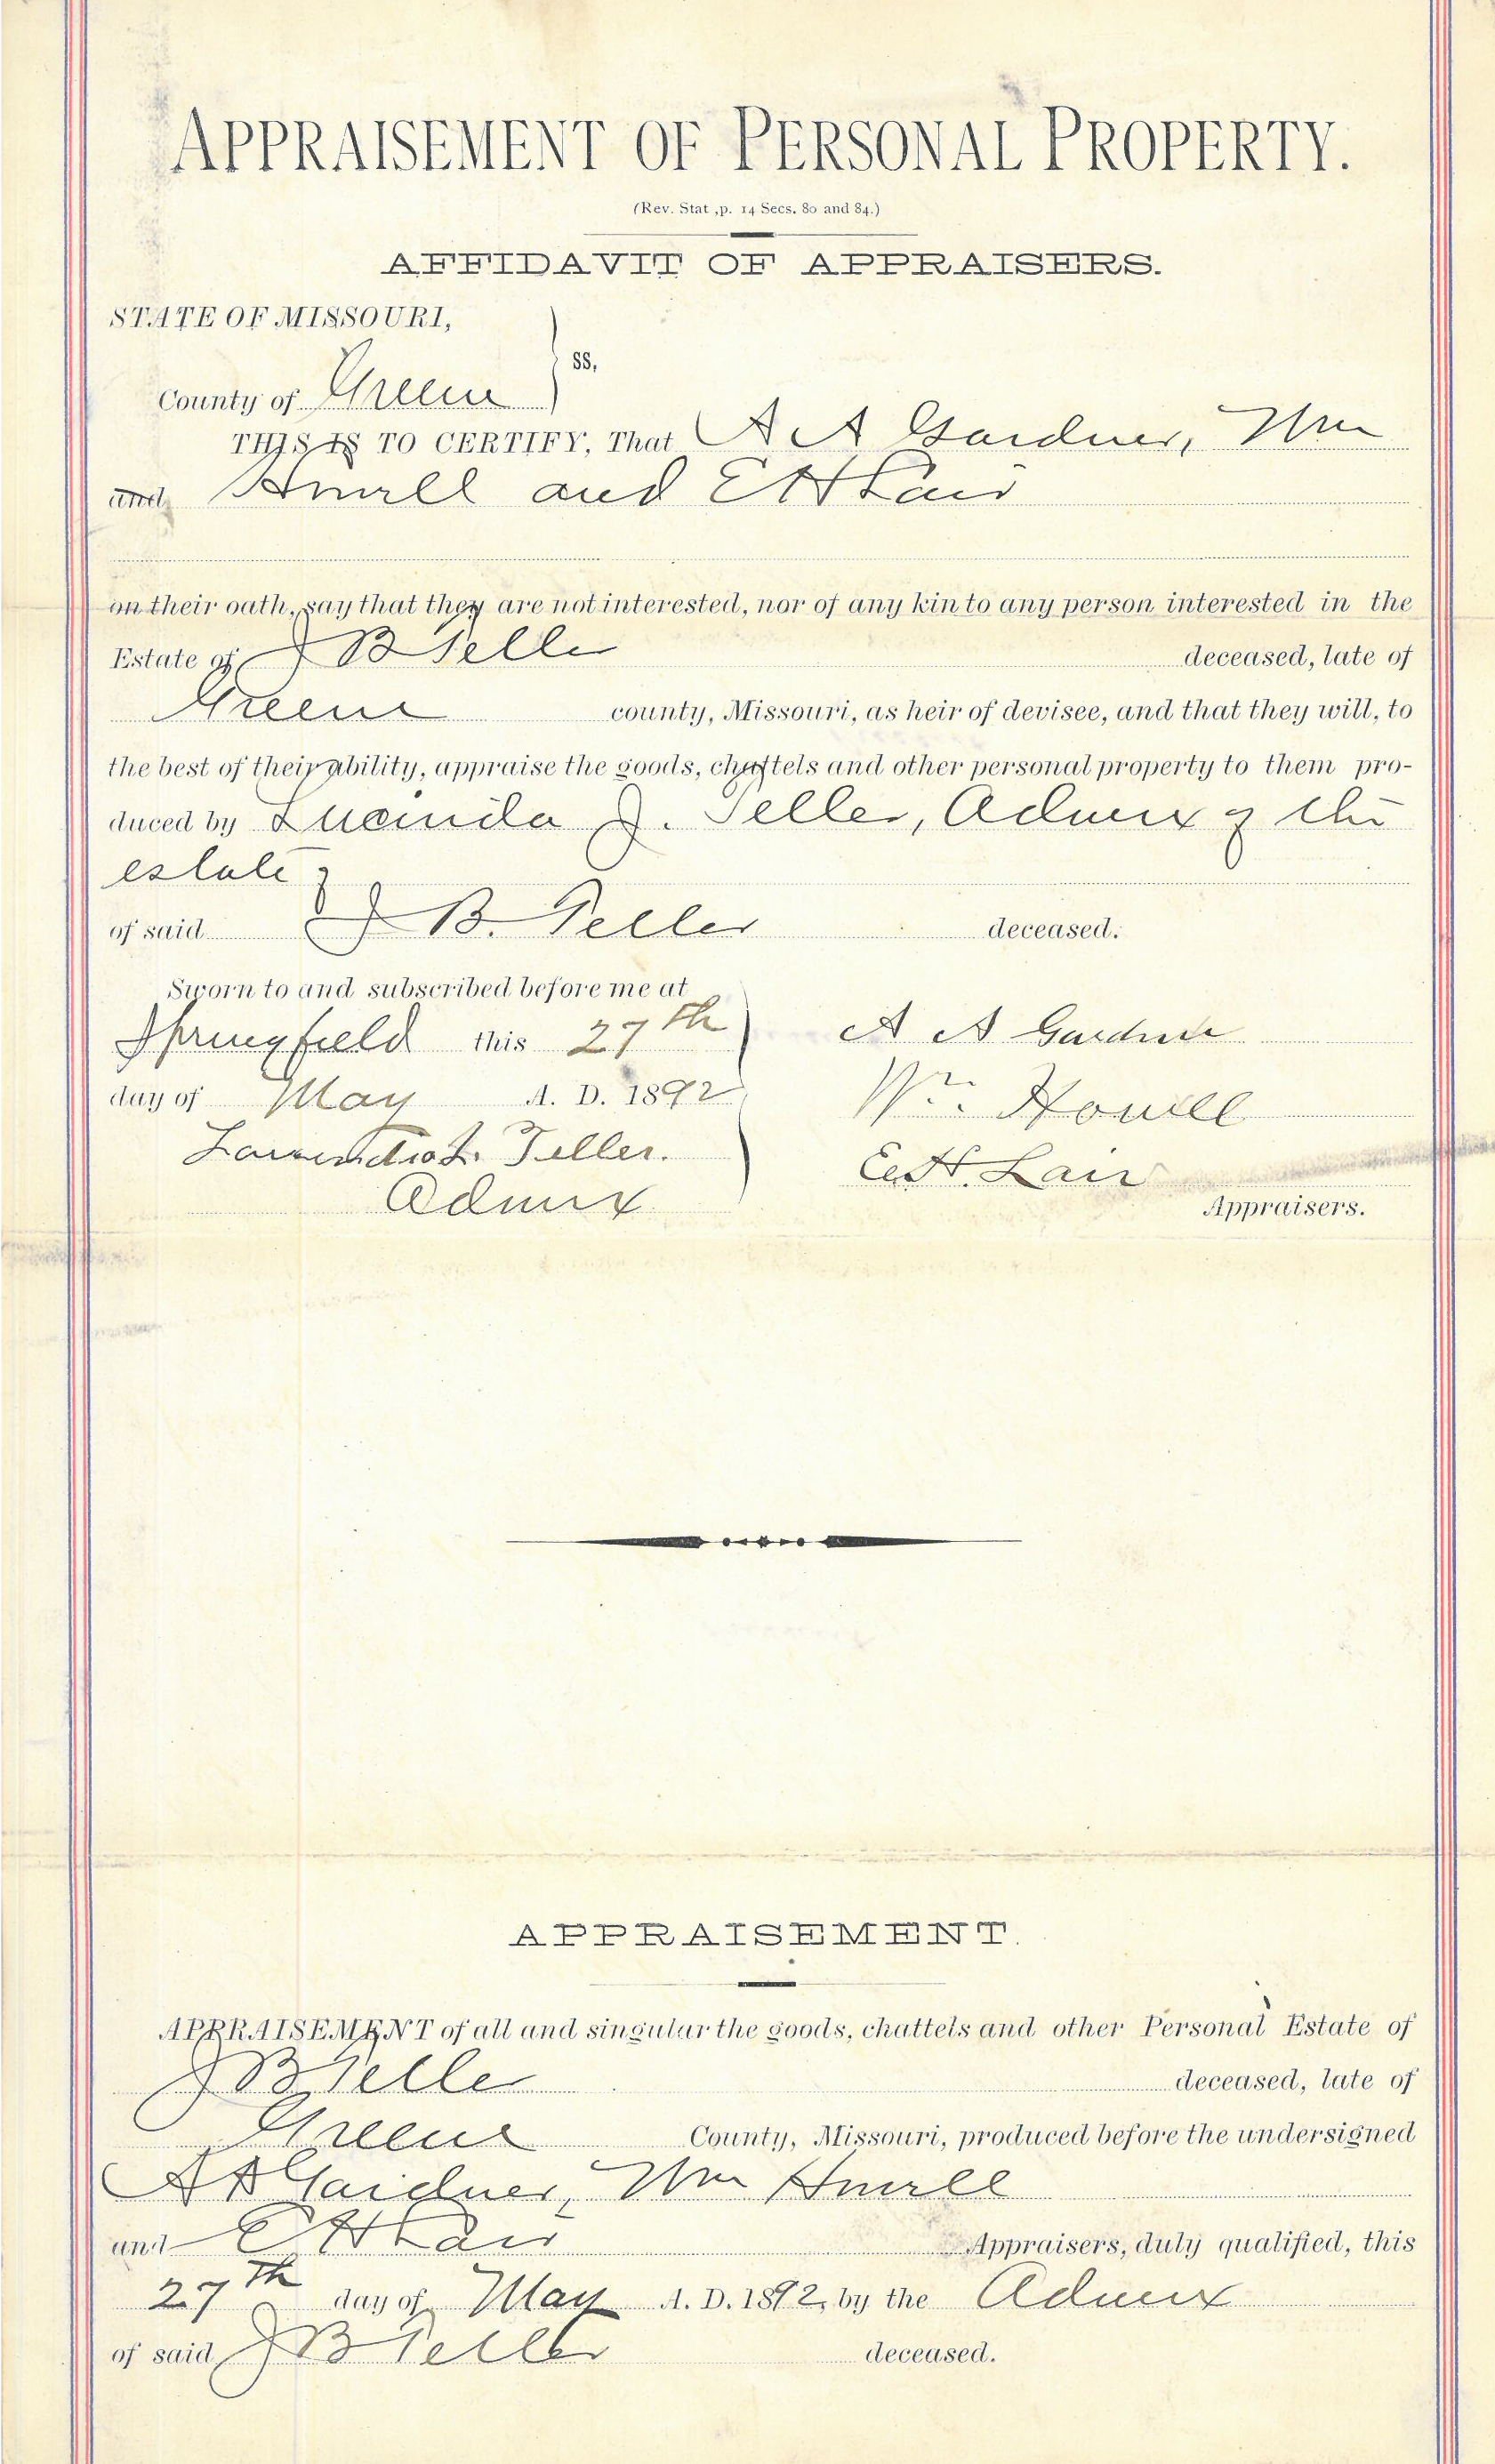 APPRAISEMENT OF PERSONAL PROPERTY.
(Rev. Stat ,p. 14 Secs. 80 and 84.)
AFFIDAVIT OF APPRAISERS.
STATE OF MISSOURI,
ss,
County of Greene
THIS IS TO CERTIFY, That A A Gardner, Wm
and Howell and E H Lair
on their oath, say that they are not interested, nor of any kin to any person interested in the
Estate of J B Teller deceased, late of
Greene county, Missouri, as heir of devisee, and that they will, to
the best of their ability, appraise the goods, chattels and other personal property to them pro-
duced by Lucinda J. Teller, Admrx of the
estate of
of said J B. Teller deceased.
Sworn to and subscribed before me at
Springfield this 27th
day of May A. D. 1892
Teller.
Admrx
A A Gardner
Wm. Howell
E. H. Lair
Appraisers.
APPRAISEMENT.
APPRAISEMENT of all and singular the goods, chattels and other Personal Estate of
J B Teller deceased, late of
Greene County, Missouri, produced before the undersigned
A A Gardner, Wm Howell
and E H Lair Appraisers, duly qualified, this
27th day of May A. D. 1892, by the Admrx
of said J B Teller deceased.